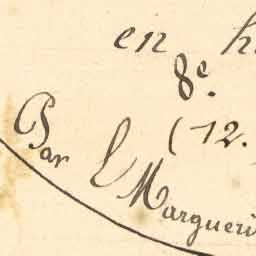 en
8e.
(12.
Par E. Margueri